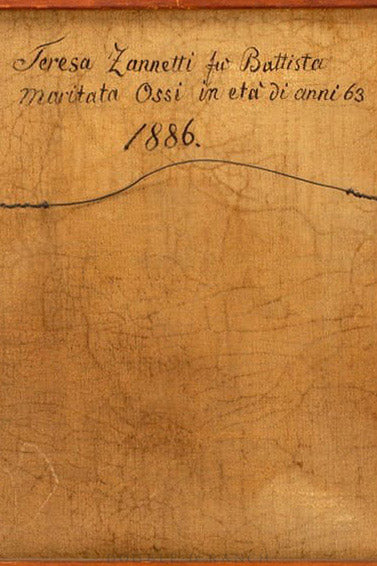 Teresa Zannetti fu Battista
maritata Ossi in età di anni 63
1886.